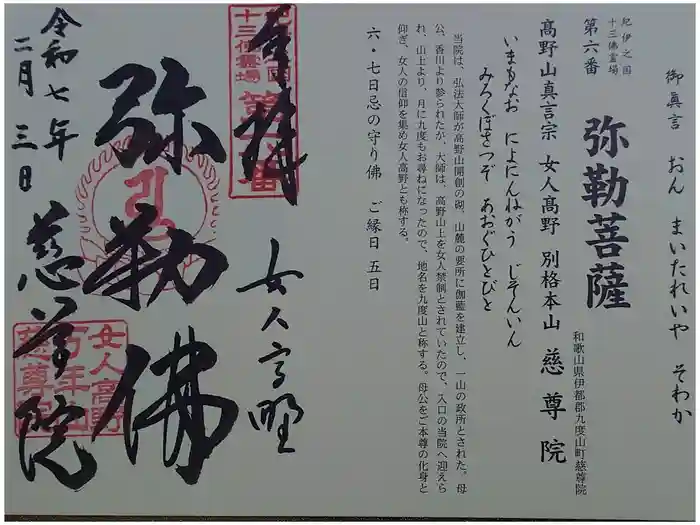 御眞言 おん まいたれいや そわか
紀伊之国
十三佛霊場
第六番 弥勒菩薩
和歌山県伊都郡九度山町慈尊院
高野山真言宗 女人高野 別格本山 慈尊院
いまもなお によにんねがう じそんいん
みろくぼさつぞ あおぐひとびと
当院は、弘法大師が高野山開創の砌、山麓の要所に伽藍を建立し、一山の政所とされた。母
公、香川より参られたが、大師は、高野山上を女人禁制とされていたので、入口の当院へ迎えら
れ、山上より、月に九度もお尋ねになったので、地名を九度山と称する。母公をご本尊の化身と
仰ぎ、女人の信仰を集め女人高野とも称する。
六・七日忌の守り佛 ご縁日 五日
奉拝 女人高野
紀伊之国
十三佛霊場
第六番
弥勒佛
令和七年
二月三日
慈尊院
女人高野
万年山
慈尊院